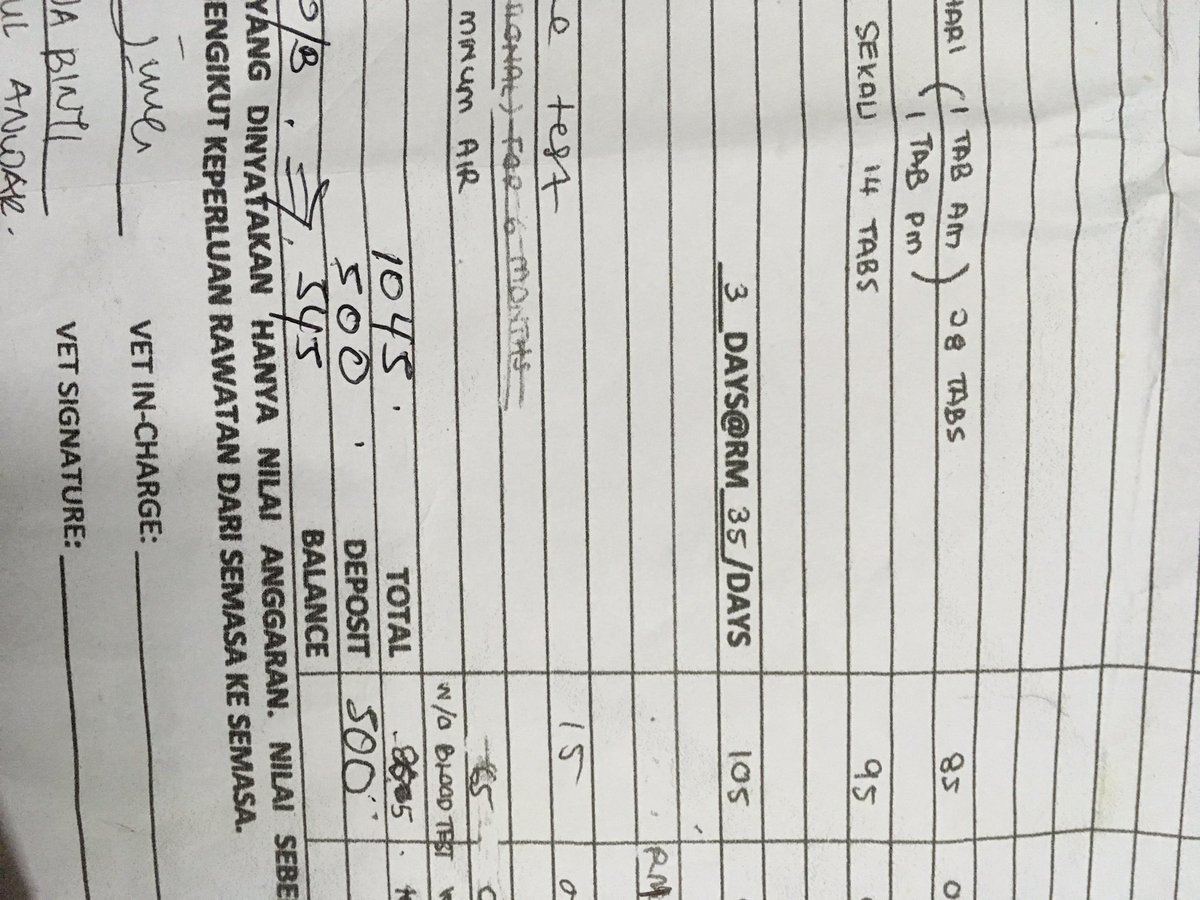 HARI (1 TAB AM) 28 TABS 85 0
(1 TAB PM)
SEKALI 14 TABS 95
3 DAYS@RM 35/DAYS 105
RM
test 15 0
FOR 6 MONTHS
MINUM AIR
W/O BLOOD TEST
1045. TOTAL
500 DEPOSIT 500
545 BALANCE
YANG DINYATAKAN HANYA NILAI ANGGARAN. NILAI SEBE
ENGIKUT KEPERLUAN RAWATAN DARI SEMASA KE SEMASA.
VET IN-CHARGE:
DA BINTI VET SIGNATURE:
UL ANWAR.